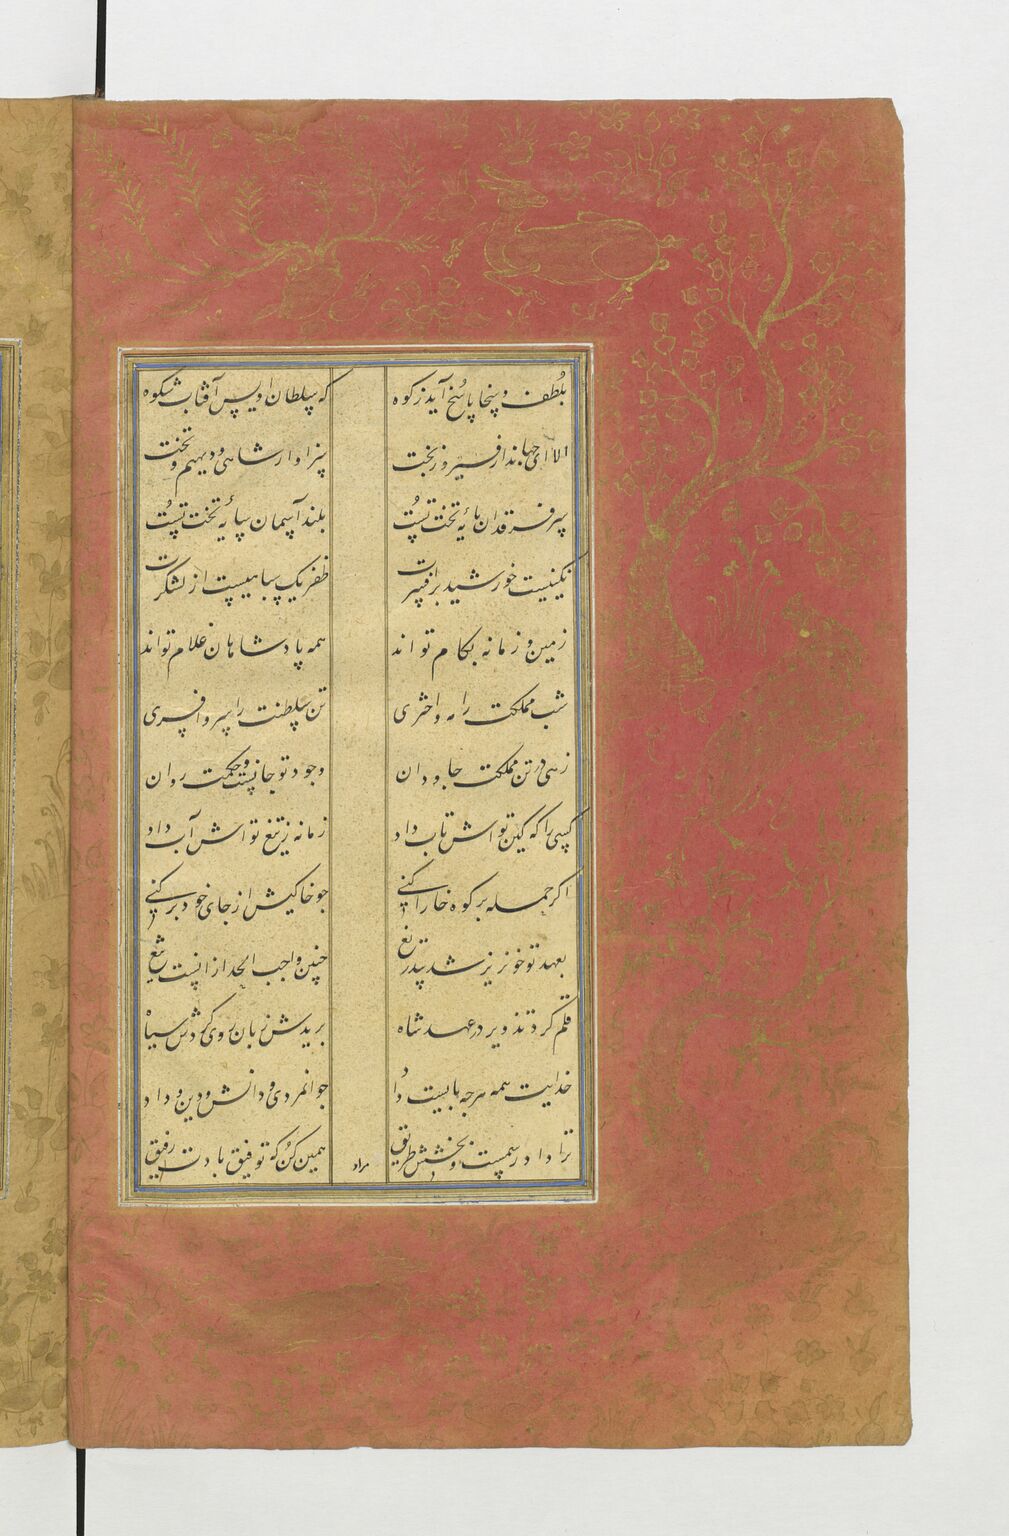 بلطف و سخا پاسخ آید ز کوه که سلطان اویس آفتاب شکوه
الا ای جهاندار فیروز بخت سزاوار شاهی و دیهیم و تخت
سر فرقدان پایهٔ تخت تست بلند آسمان سایهٔ تخت تست
نگینیست خورشید بر افسرت ظفر یک سپاهیست از لشکرت
زمین و زمانه بکام تو اند همه پادشاهان غلام تو اند
شب مملکت را مه و اختری تن سلطنت را سر و افسری
زهی در تن مملکت جاودان وجود تو جانیست و حکمت روان
کسی را که کین تو اش تاب داد زمانه ز تیغ تو اش آب داد
اگر حمله بر کوه خارا کنی جو خاکیش از جای خود بر کنی
بعهد تو خونریز شد تیغ چنین واجب الحد از انست تیغ
قلم کرد تذویر در عهد شاه بریدش زبان روی کردش سیاه
خدایت همه هرجه بایست داد جوانمردی و دانش و دین و داد
ترا داد رسمست و بخشش طریق همین کن که توفیق بادت رفیق
مراد